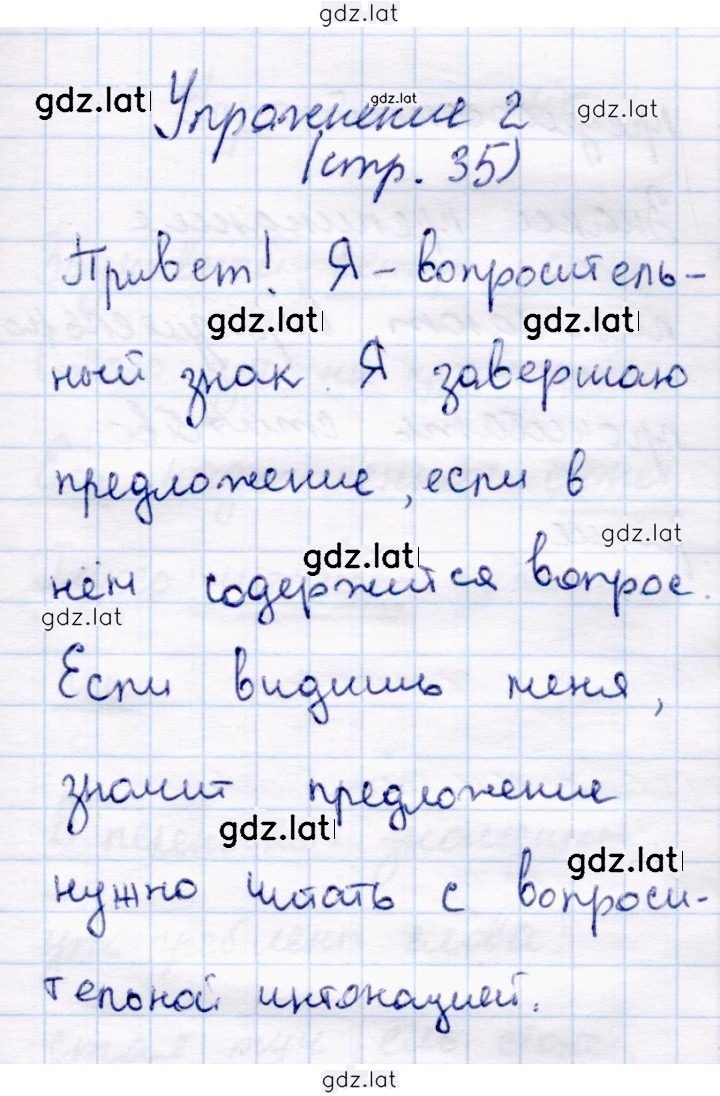 gdz.lat
gdz.lat gdz.lat gdz.lat
Упражнение 2
(стр. 35)
Привет! Я - вопроситель-
gdz.lat gdz.lat
ный знак. Я завершаю
предложение, если в
gdz.lat
gdz.lat
нём содержится вопрос.
gdz.lat
Если видишь меня,
значит предложение
gdz.lat
gdz.lat
нужно читать с вопроси-
тельной интонацией.
gdz.lat